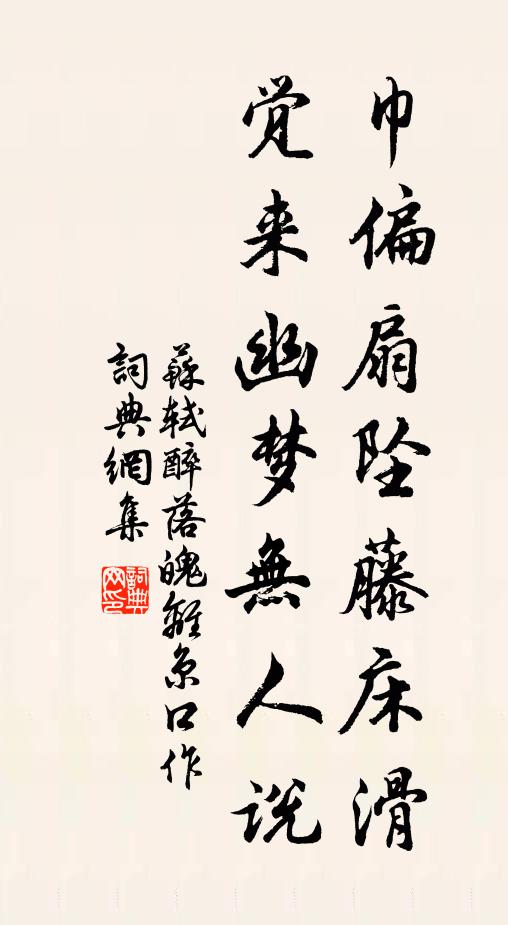 巾偏扇坠藤床滑
觉来幽梦無人说
蘇轼醉落魄離京口作
詞典網集
詞典网印